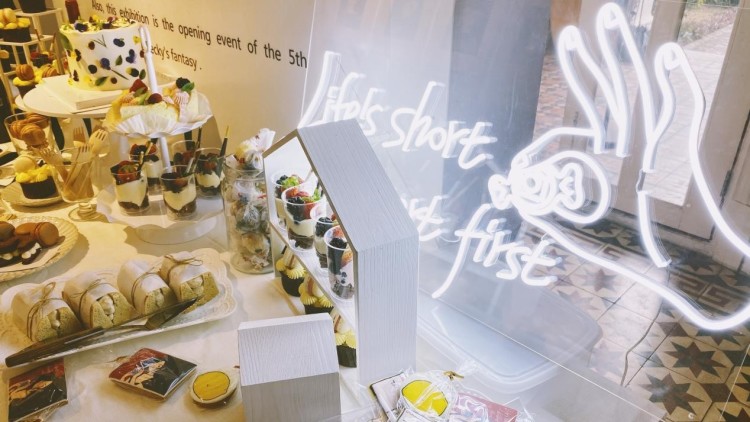 Also, this exhibition is the opening event of the 5th
ecky's fantasy.
Life's short
first